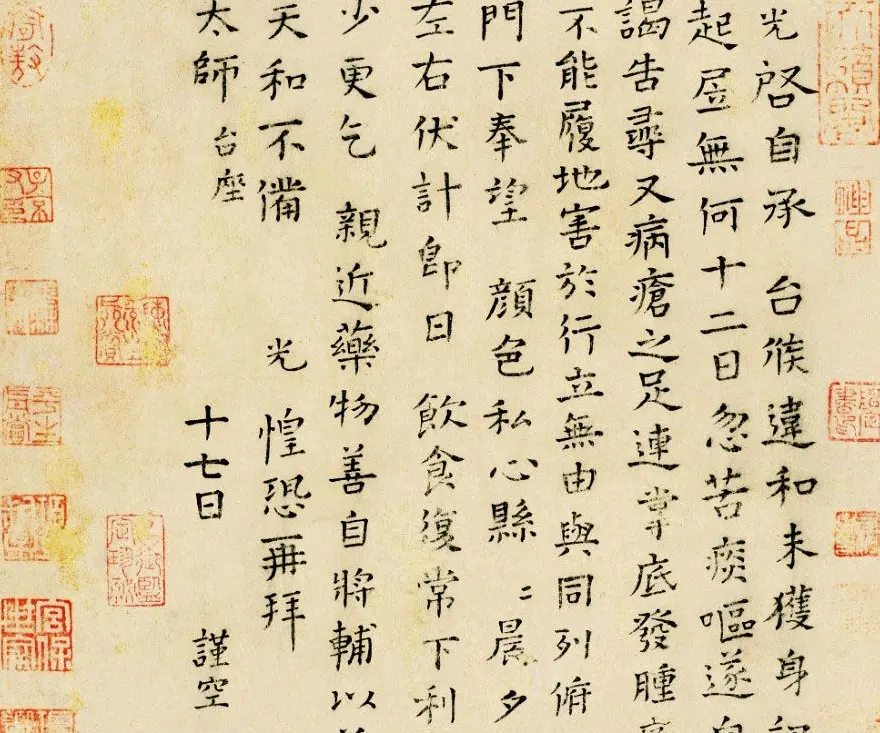 光啓自承 台候違和未獲身
起居無何十二日忽苦痰嘔遂自
謁告尋又病瘡之足連掌底發腫
不能履地害於行立無由與同列俯
門下奉望 顔色私心縣〻晨夕
左右伏計即日 飲食復常下利
少更乞 親近藥物善自將輔以
天和不備 光 惶恐再拜
太師 台座
十七日 謹空
宮保世家